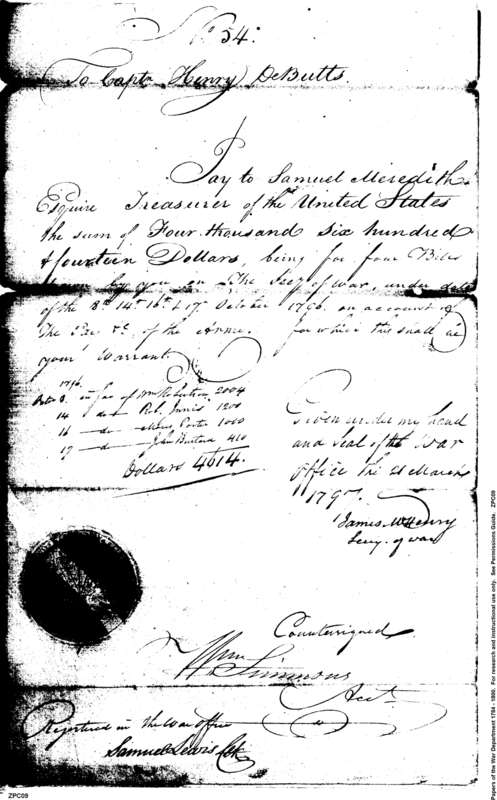 No. 54.
To Captn. Henry DeButts.
Pay to Samuel Meredith
Esquire Treasurer of the United States
the sum of Four thousand six hundred
& fourteen Dollars, being for four Bills
drawn by you on The Secy of War, under date
of the 8th 14th 16th & 17th October 1796. on account of
The Pay &c. of the Army. for which this shall be
your Warrant.
1796.
Octr 8. in fav of Wm Robertson 2004
14 — do — Rob. Innis 1200
16 — do — Porter 1000
17 — do — John 410
Dollars 4614.
Given under my hand
and Seal of the War
office the 21 March
1797.
James McHenry
Secy. of War
Countersigned
Wm Simmons
Acct
Registered in the War office
Samuel Lewis Clk.
ZPC09
Papers of the War Department 1784 - 1800. For research and instructional use only. See Permissions Guide. ZPC09